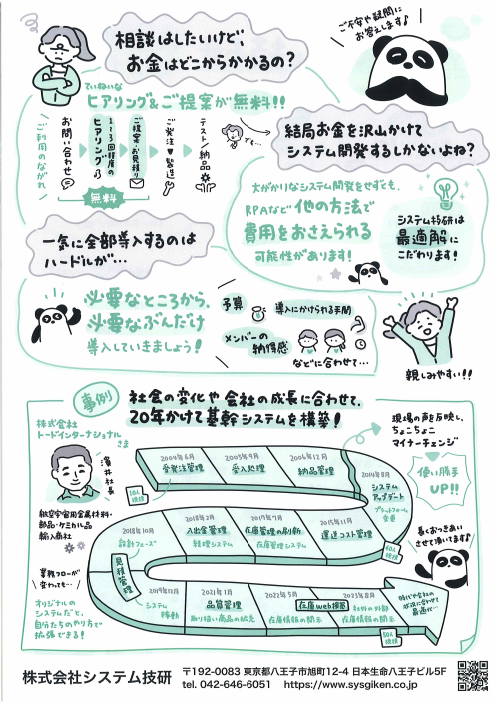 ご不安や疑問に
お答えします♪
相談はしたいけど、
お金はどこからかかるの？
ていねいな
ヒアリング&ご提案が無料!!
ご利用のながれ
お問い合わせ
1~3回程度の
ヒアリング
ご提案・お見積り
ご発注♥製造
テスト/納品
無料
でも…
結局お金を沢山かけて
システム開発するしかないよね？
大がかりなシステム開発をせずとも、
RPAなど他の方法で
費用をおさえられる
可能性があります!
システム技研は
最適解に
こだわります!
一気に全部導入するのは
ハードルが…
必要なところから、
必要なぶんだけ
導入していきましょう!
予算
導入にかけられる手間
メンバーの
納得感
などに合わせて…
親しみやすい!!
事例
社会の変化や会社の成長に合わせて、
20年かけて基幹システムを構築!
株式会社
トードインターナショナル
さま
濱井社長
航空宇宙用金属材料・
部品・ケミカル品
輸入商社
業務フローが
変わっても…
オリジナルの
システムだと、
自分たちのやり方で
拡張できる!
現場の声を反映し、
ちょこちょこ
マイナーチェンジ
使い勝手
UP!!
長くおつきあい
させて頂いてます♪
2004年6月
受発注管理
10人
規模
2005年9月
受入処理
2006年12月
納品管理
2014年8月
システム
アップデート
プラットフォーム
変更
2015年11月
運送コスト管理
40人
規模
2017年7月
在庫管理の刷新
在庫管理システム
2018年2月
入出金管理
経理システム
2018年10月
設計フェーズ
見積管理
2019年11月
システム
稼動
2021年1月
品質管理
取り扱い商品の拡充
2022年5月
在庫web検索
在庫情報の開示
2023年8月
社外の外部
在庫情報の開示
50人
規模
時代や会社の
状況に合わせて
最適化…
株式会社システム技研
〒192-0083 東京都八王子市旭町12-4 日本生命八王子ビル5F
tel. 042-646-6051 https://www.sysgiken.co.jp